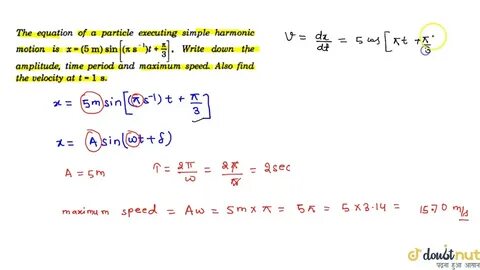 The equation of a particle executing simple harmonic
motion is x = (5 m) sin [(π s⁻¹)t + π/3]. Write down the
amplitude, time period and maximum speed. Also find
the velocity at t = 1 s.
V = dx/dt = 5 cos [πt + π/3
x = 5m sin[(π s⁻¹) t + π/3]
x = A sin(ωt + δ)
A = 5m T = 2π/ω = 2π/π = 2sec
maximum speed = Aω = 5m × π = 5π = 5 × 3.14 = 15.70 m/s
doubtnut
पढ़ना हुआ आसान